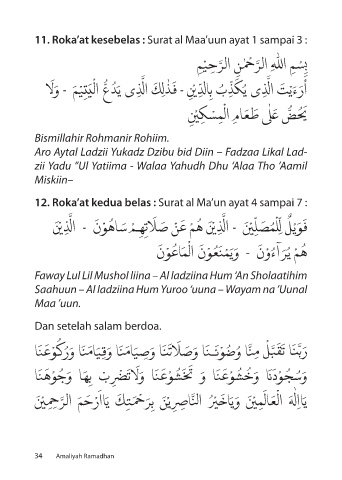 11. Roka’at kesebelas : Surat al Maa’uun ayat 1 sampai 3 :
بِسْمِ اللهِ الرَّحْمٰنِ الرَّحِيْمِ
أَرَءَيْتَ الَّذِى يُكَذِّبُ بِالدِّيْنِ - فَذٰلِكَ الَّذِى يَدُعُّ الْيَتِيْمَ - وَلَا
يَحُضُّ عَلٰى طَعَامِ الْمِسْكِيْنِ
Bismillahir Rohmanir Rohiim.
Aro Aytal Ladzii Yukadz Dzibu bid Diin – Fadzaa Likal Lad-
zii Yadu ”Ul Yatiima - Walaa Yahudh Dhu ‘Alaa Tho ‘Aamil
Miskiin–
12. Roka’at kedua belas : Surat al Ma’un ayat 4 sampai 7 :
فَوَيْلٌ لِّلْمُصَلِّيْنَ - الَّذِيْنَ هُمْ عَنْ صَلَاتِهِمْ سَاهُوْنَ - الَّذِيْنَ
هُمْ يُرَآءُوْنَ - وَيَمْنَعُوْنَ الْمَاعُوْنَ
Faway Lul Lil Mushol liina – Al ladziina Hum ‘An Sholaatihim
Saahuun – Al ladziina Hum Yuroo ‘uuna – Wayam na ‘Uunal
Maa ‘uun.
Dan setelah salam berdoa.
رَبَّنَا تَقَبَّلْ مِنَّا وُضُوْءَنَا وَصَلَاتَنَا وَصِيَامَنَا وَقِيَامَنَا وَرُكُوْعَنَا
وَسُجُوْدَنَا وَخُشُوْعَنَا وَ تَخَشُّعَنَا وَلَاتَضْرِبْ بِهَا وُجُوْهَنَا
يَاإِلٰهَ الْعَالَمِيْنَ وَيَاخَيْرُ النَّاصِرِيْنَ بِرَحْمَتِكَ يَاأَرْحَمَ الرَّحِمِيْنَ
34 Amaliyah Ramadhan